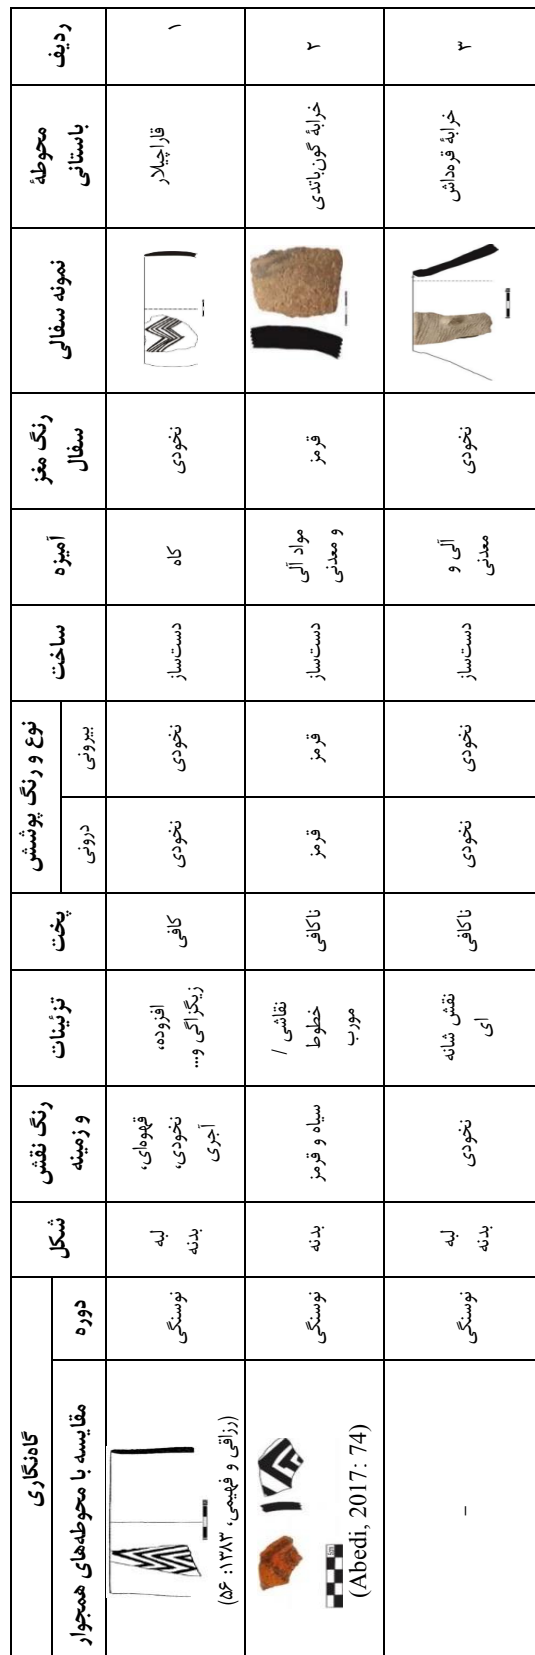 ردیف
محوطهٔ
باستانی
نمونه سفالی
رنگ مغز
سفال
آمیزه
ساخت
نوع و رنگ پوشش
بیرونی
درونی
پخت
تزئینات
رنگ نقش
و زمینه
شکل
گاه‌نگاری
دوره
مقایسه با محوطه‌های همجوار
۱
قاراچیلار
نخودی
کاه
دست‌ساز
نخودی
نخودی
کافی
افزوده،
زیگزاگی و...
قهوه‌ای،
نخودی،
آجری
لبه
بدنه
نوسنگی
(رزاقی و فهیمی، ۱۳۸۳: ۵۶)
۲
خرابهٔ گون‌باتدی
قرمز
مواد آلی
و معدنی
دست‌ساز
قرمز
قرمز
ناکافی
نقاشی /
خطوط
مورب
سیاه و قرمز
بدنه
نوسنگی
(Abedi, 2017: 74)
۳
خرابهٔ قره‌داش
نخودی
آلی و
معدنی
دست‌ساز
نخودی
نخودی
ناکافی
نقش شانه
ای
نخودی
لبه
بدنه
نوسنگی
–